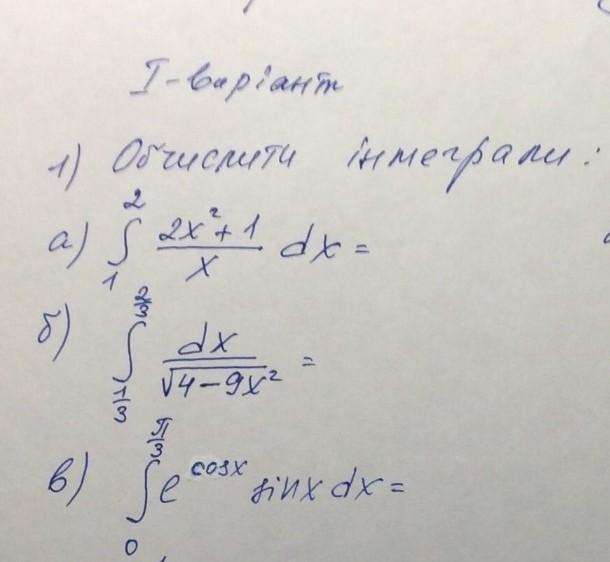 I-варіант
1) Обчислити інтеграли:
а) ∫₁² (2x²+1)/x dx =
б) ∫_{1/3}^{2/3} dx/√(4-9x²) =
в) ∫₀^{π/3} e^{cosx} sinx dx =